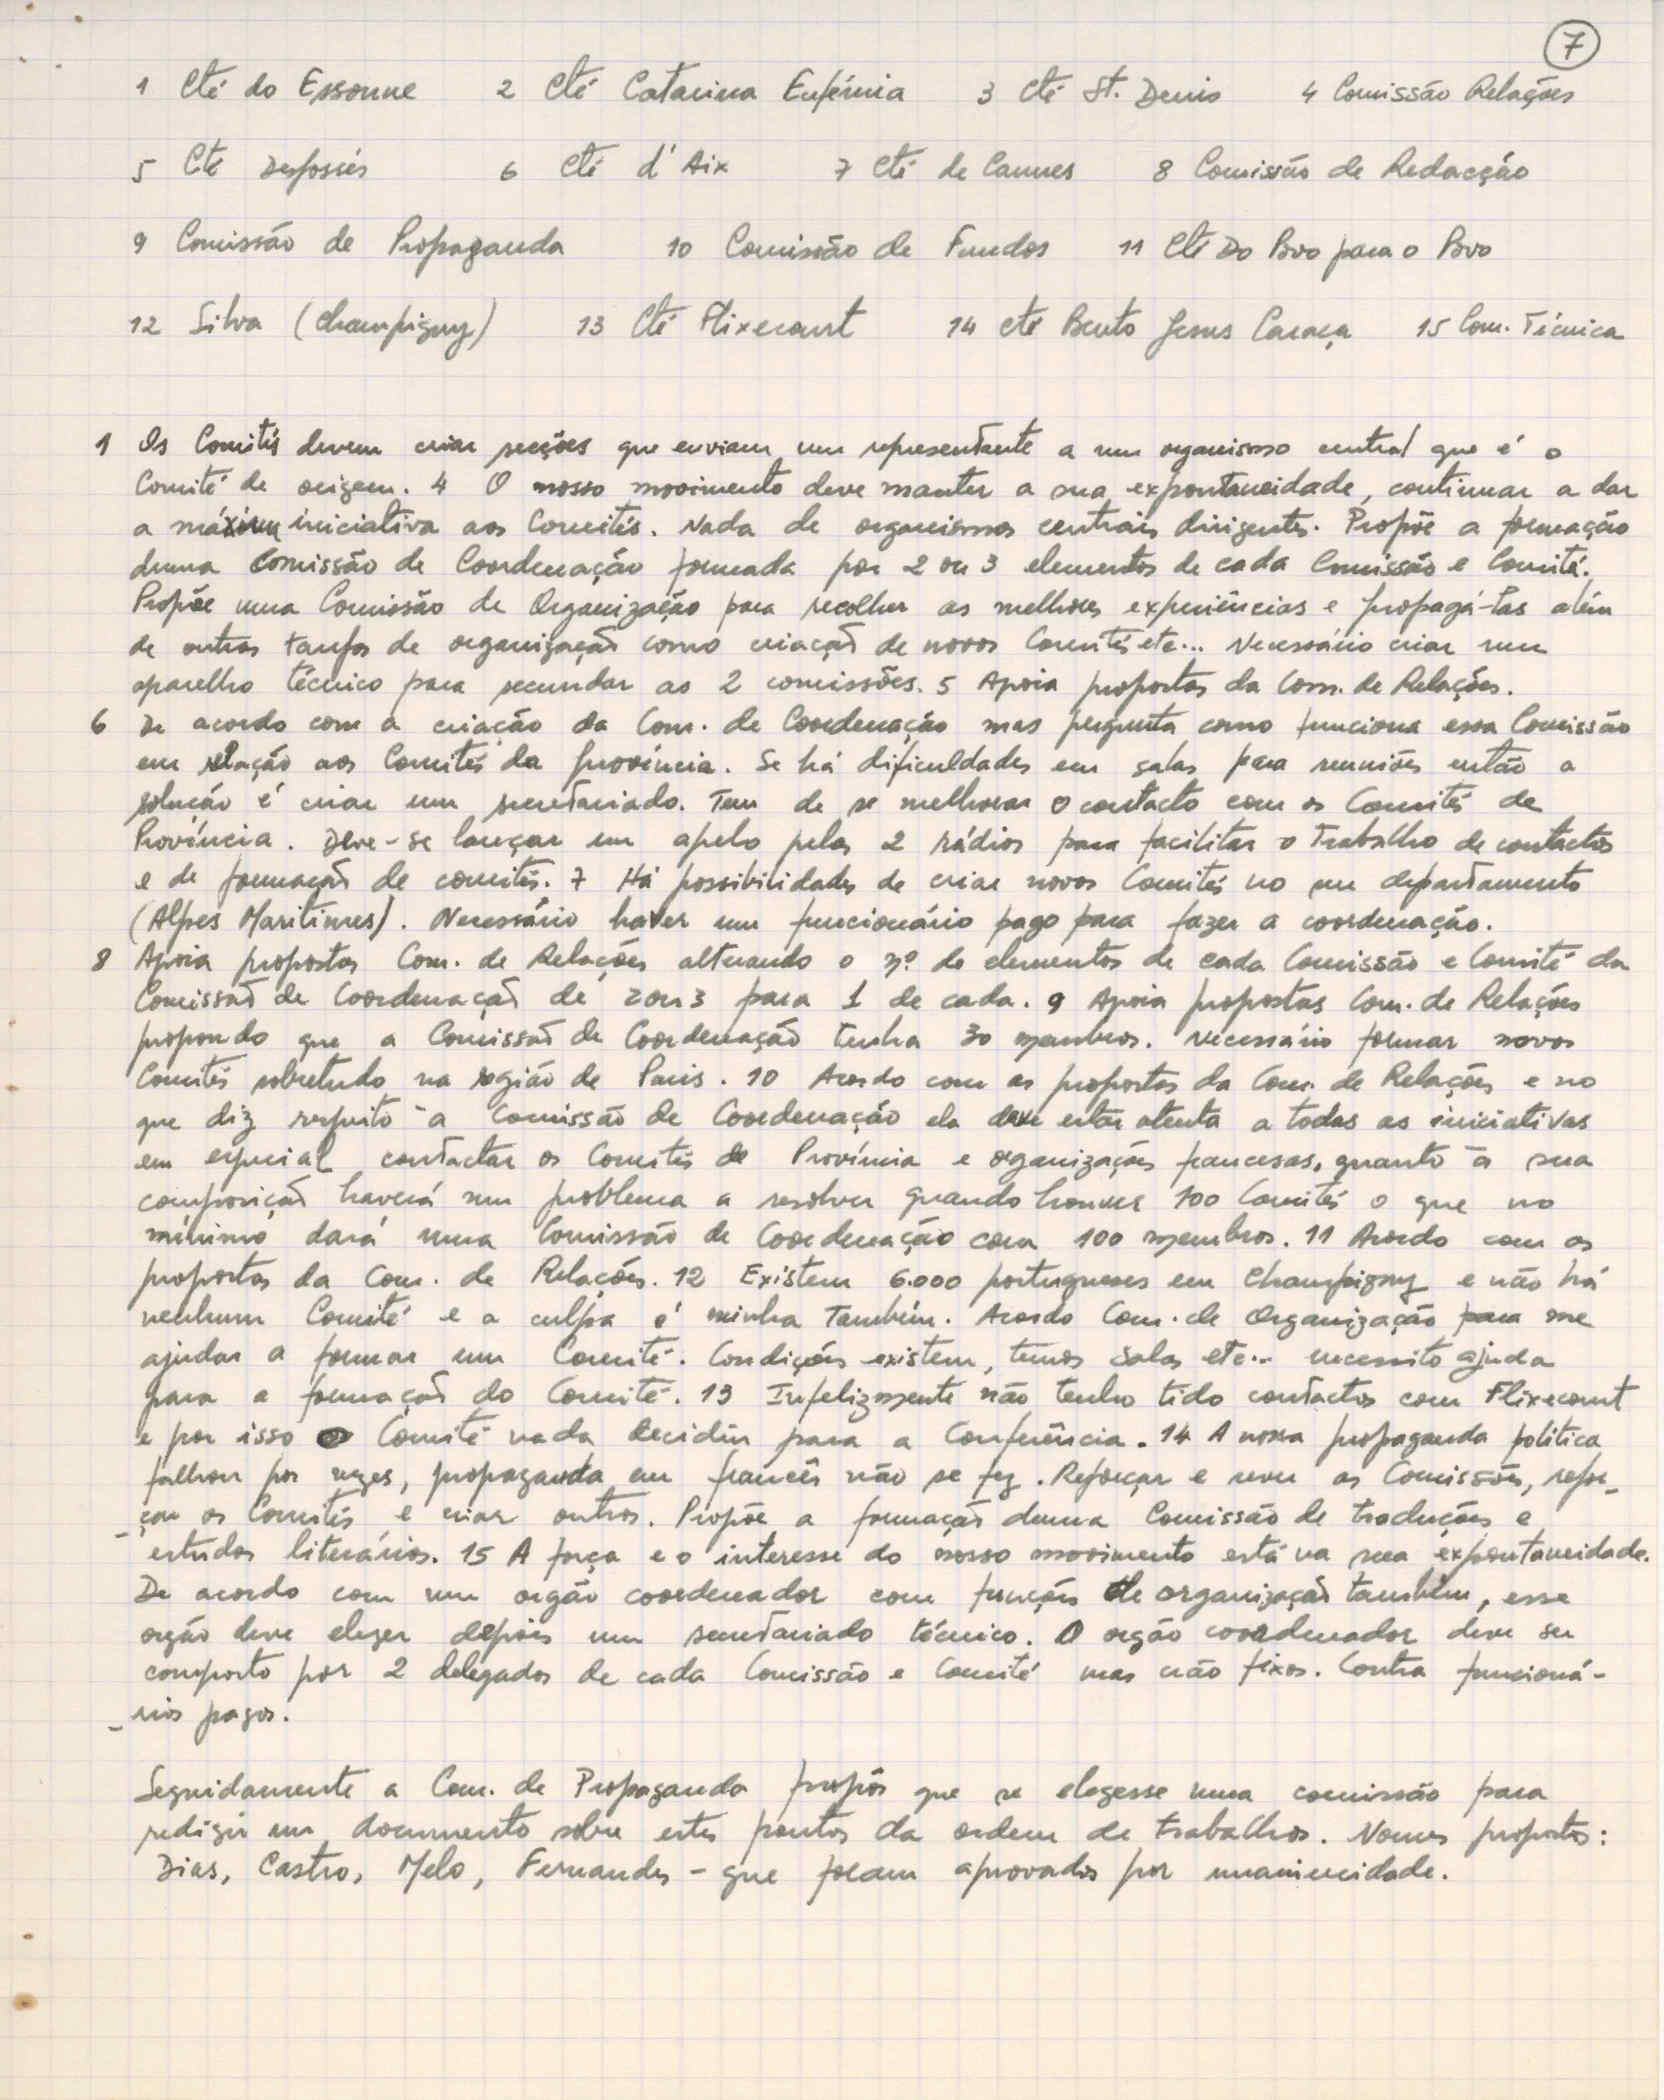 7
1 Cté do Essonne 2 Cté Catarina Eufémia 3 Cté St. Denis 4 Comissão Relações
5 Cté Desfossés 6 Cté d'Aix 7 Cté de Cannes 8 Comissão de Redacção
9 Comissão de Propaganda 10 Comissão de Fundos 11 Cté Do Povo para o Povo
12 Silva (Champigny) 13 Cté Flixecourt 14 Cté Bento Jesus Caraça 15 Com. Técnica
1 Os Comités devem criar secções que enviam um representante a um organismo central que é o
Comité de origem. 4 O nosso movimento deve manter a sua expontaneidade, continuar a dar
a máxima iniciativa aos Comités. Nada de organismos centrais dirigentes. Propõe a formação
duma Comissão de Coordenação formada por 2 ou 3 elementos de cada Comissão e Comité.
Propõe uma Comissão de Organização para recolher as melhores experiências e propagá-las além
de outras tarefas de organização como criação de novos Comités etc... Necessário criar um
aparelho técnico para secundar as 2 comissões. 5 Apoia propostas da Com. de Relações.
6 De acordo com a criação da Com. de Coordenação mas pergunta como funciona essa Comissão
em relação aos Comités da província. Se há dificuldades em salas para reuniões então a
solução é criar um secretariado. Tem de se melhorar o contacto com os Comités de
Província. Deve-se lançar um apelo pelas 2 rádios para facilitar o Trabalho de contactos
e de formação de comités. 7 Há possibilidades de criar novos Comités no seu departamento
(Alpes Maritimes). Necessário haver um funcionário pago para fazer a coordenação.
8 Apoia propostas Com. de Relações alterando o nº de elementos de cada Comissão e Comité da
Comissão de Coordenação de 2 ou 3 para 1 de cada. 9 Apoia propostas Com. de Relações
propondo que a Comissão de Coordenação tenha 30 membros. Necessário formar novos
Comités sobretudo na região de Paris. 10 Acordo com as propostas da Com. de Relações e no
que diz respeito à Comissão de Coordenação ela deve estar atenta a todas as iniciativas
em especial contactar os Comités de Província e organizações francesas, quanto à sua
composição haverá um problema a resolver quando houver 100 Comités o que no
mínimo dará uma Comissão de Coordenação com 100 membros. 11 Acordo com as
propostas da Com. de Relações. 12 Existem 6.000 portugueses em Champigny e não há
nenhum Comité e a culpa é minha Também. Acordo Com. de Organização para me
ajudar a formar um Comité. Condições existem, temos salas etc... necessito ajuda
para a formação do Comité. 13 Infelizmente não tenho tido contactos com Flixecourt
e por isso o Comité nada decidiu para a Conferência. 14 A nossa propaganda politica
falhou por vezes, propaganda em francês não se fez. Reforçar e rever as Comissões, refor-
-çar os Comités e criar outros. Propõe a formação duma Comissão de traduções e
estudos literários. 15 A força e o interesse do nosso movimento está na sua expontaneidade.
De acordo com um orgão coordenador com funções de organização também, esse
orgão deve eleger depois um secretariado técnico. O orgão coordenador deve ser
composto por 2 delegados de cada Comissão e Comité mas não fixos. Contra funcioná-
-rios pagos.
Seguidamente a Com. de Propaganda propôs que se elegesse uma comissão para
redigir um documento sobre estes pontos da ordem de trabalhos. Nomes propostos:
Dias, Castro, Melo, Fernandes - que foram aprovados por unanimidade.